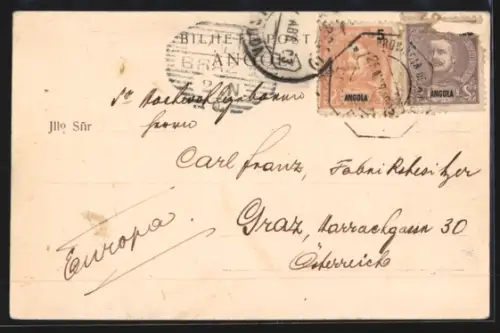 BILHETE POSTAL
ANGOLA
5
ANGOLA
ANGOLA
Sr Hochwohlgeboren
Illo Sñr
Herrn
Carl Franz, Fabriksbesitzer
Graz, Harrachgasse 30
Österreich
Europa.